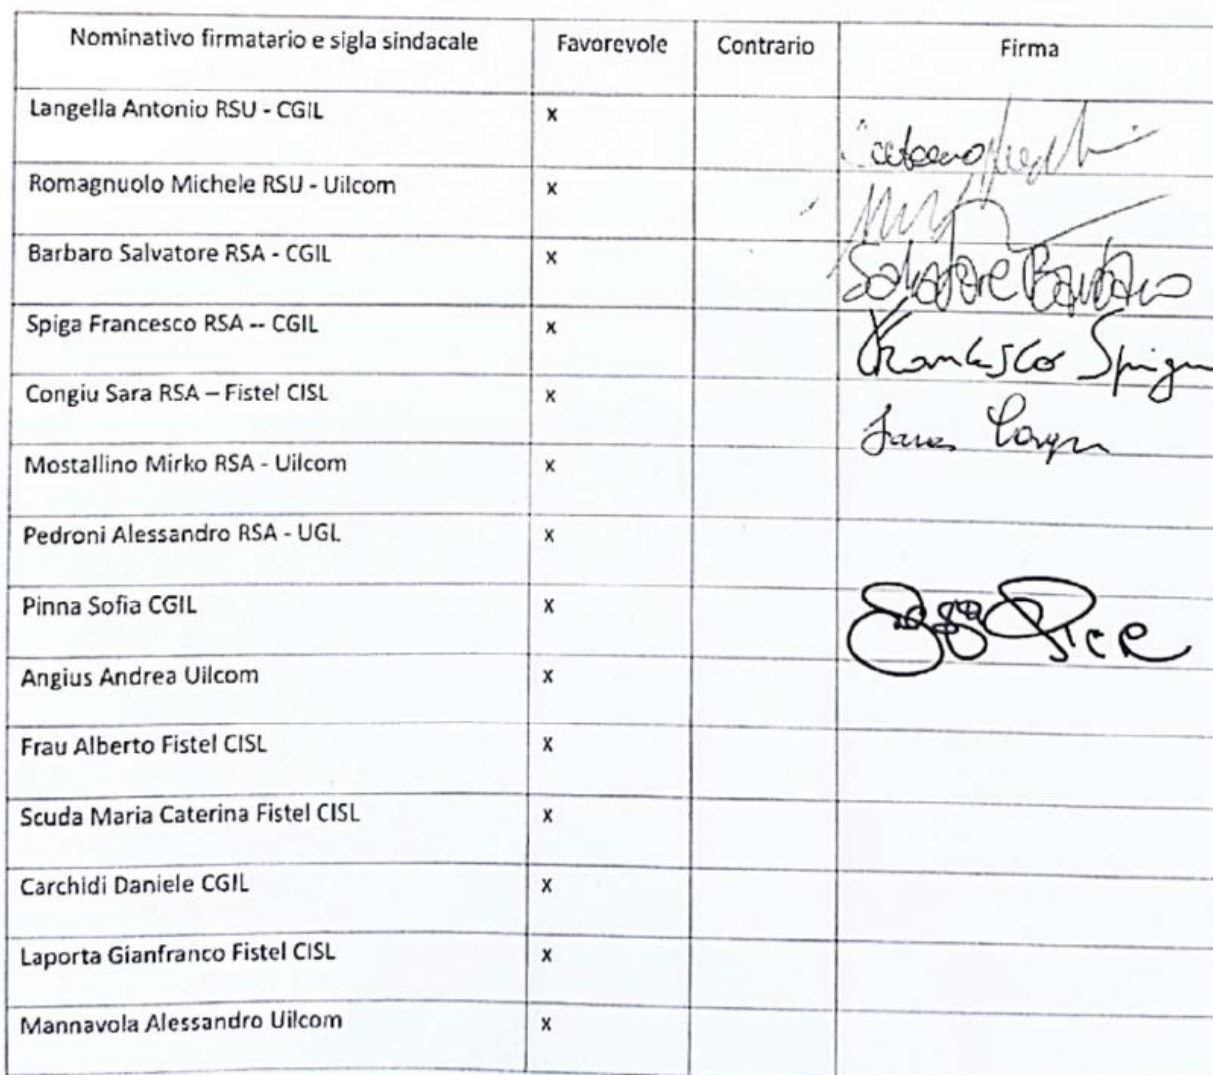 Nominativo firmatario e sigla sindacale Favorevole Contrario Firma
Langella Antonio RSU - CGIL x
Romagnuolo Michele RSU - Uilcom x
Barbaro Salvatore RSA - CGIL x Salvatore Barbaro
Spiga Francesco RSA -- CGIL x Francesco Spiga
Congiu Sara RSA – Fistel CISL x Sara Congiu
Mostallino Mirko RSA - Uilcom x
Pedroni Alessandro RSA - UGL x
Pinna Sofia CGIL x
Angius Andrea Uilcom x
Frau Alberto Fistel CISL x
Scuda Maria Caterina Fistel CISL x
Carchidi Daniele CGIL x
Laporta Gianfranco Fistel CISL x
Mannavola Alessandro Uilcom x